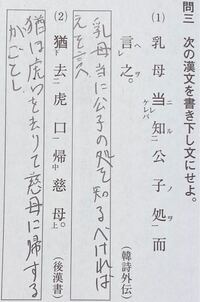 問三 次の漢文を書き下し文にせよ。
(1) 乳母当レ知二公子処一而
ニ ケレバ ル ノ ヲ
言レ之。
ヘ ヲ
(韓詩外伝)
乳母当に公子の処を知るべければ
之を言へ
(2) 猶下去二虎口一帰中慈母上。
(後漢書)
猶ほ虎口を去りて慈母に帰する
がごとし